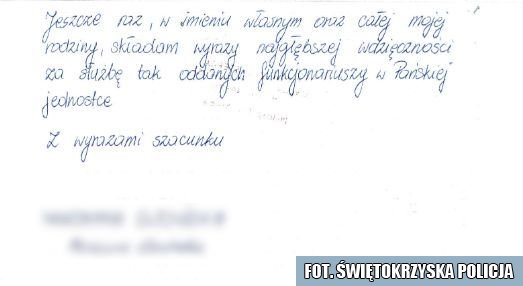 Jeszcze raz, w imieniu własnym oraz całej mojej
rodziny, składam wyrazy najgłębszej wdzięczności
za służbę tak oddanych funkcjonariuszy w Pańskiej
jednostce
Z wyrazami szacunku
FOT. ŚWIĘTOKRZYSKA POLICJA